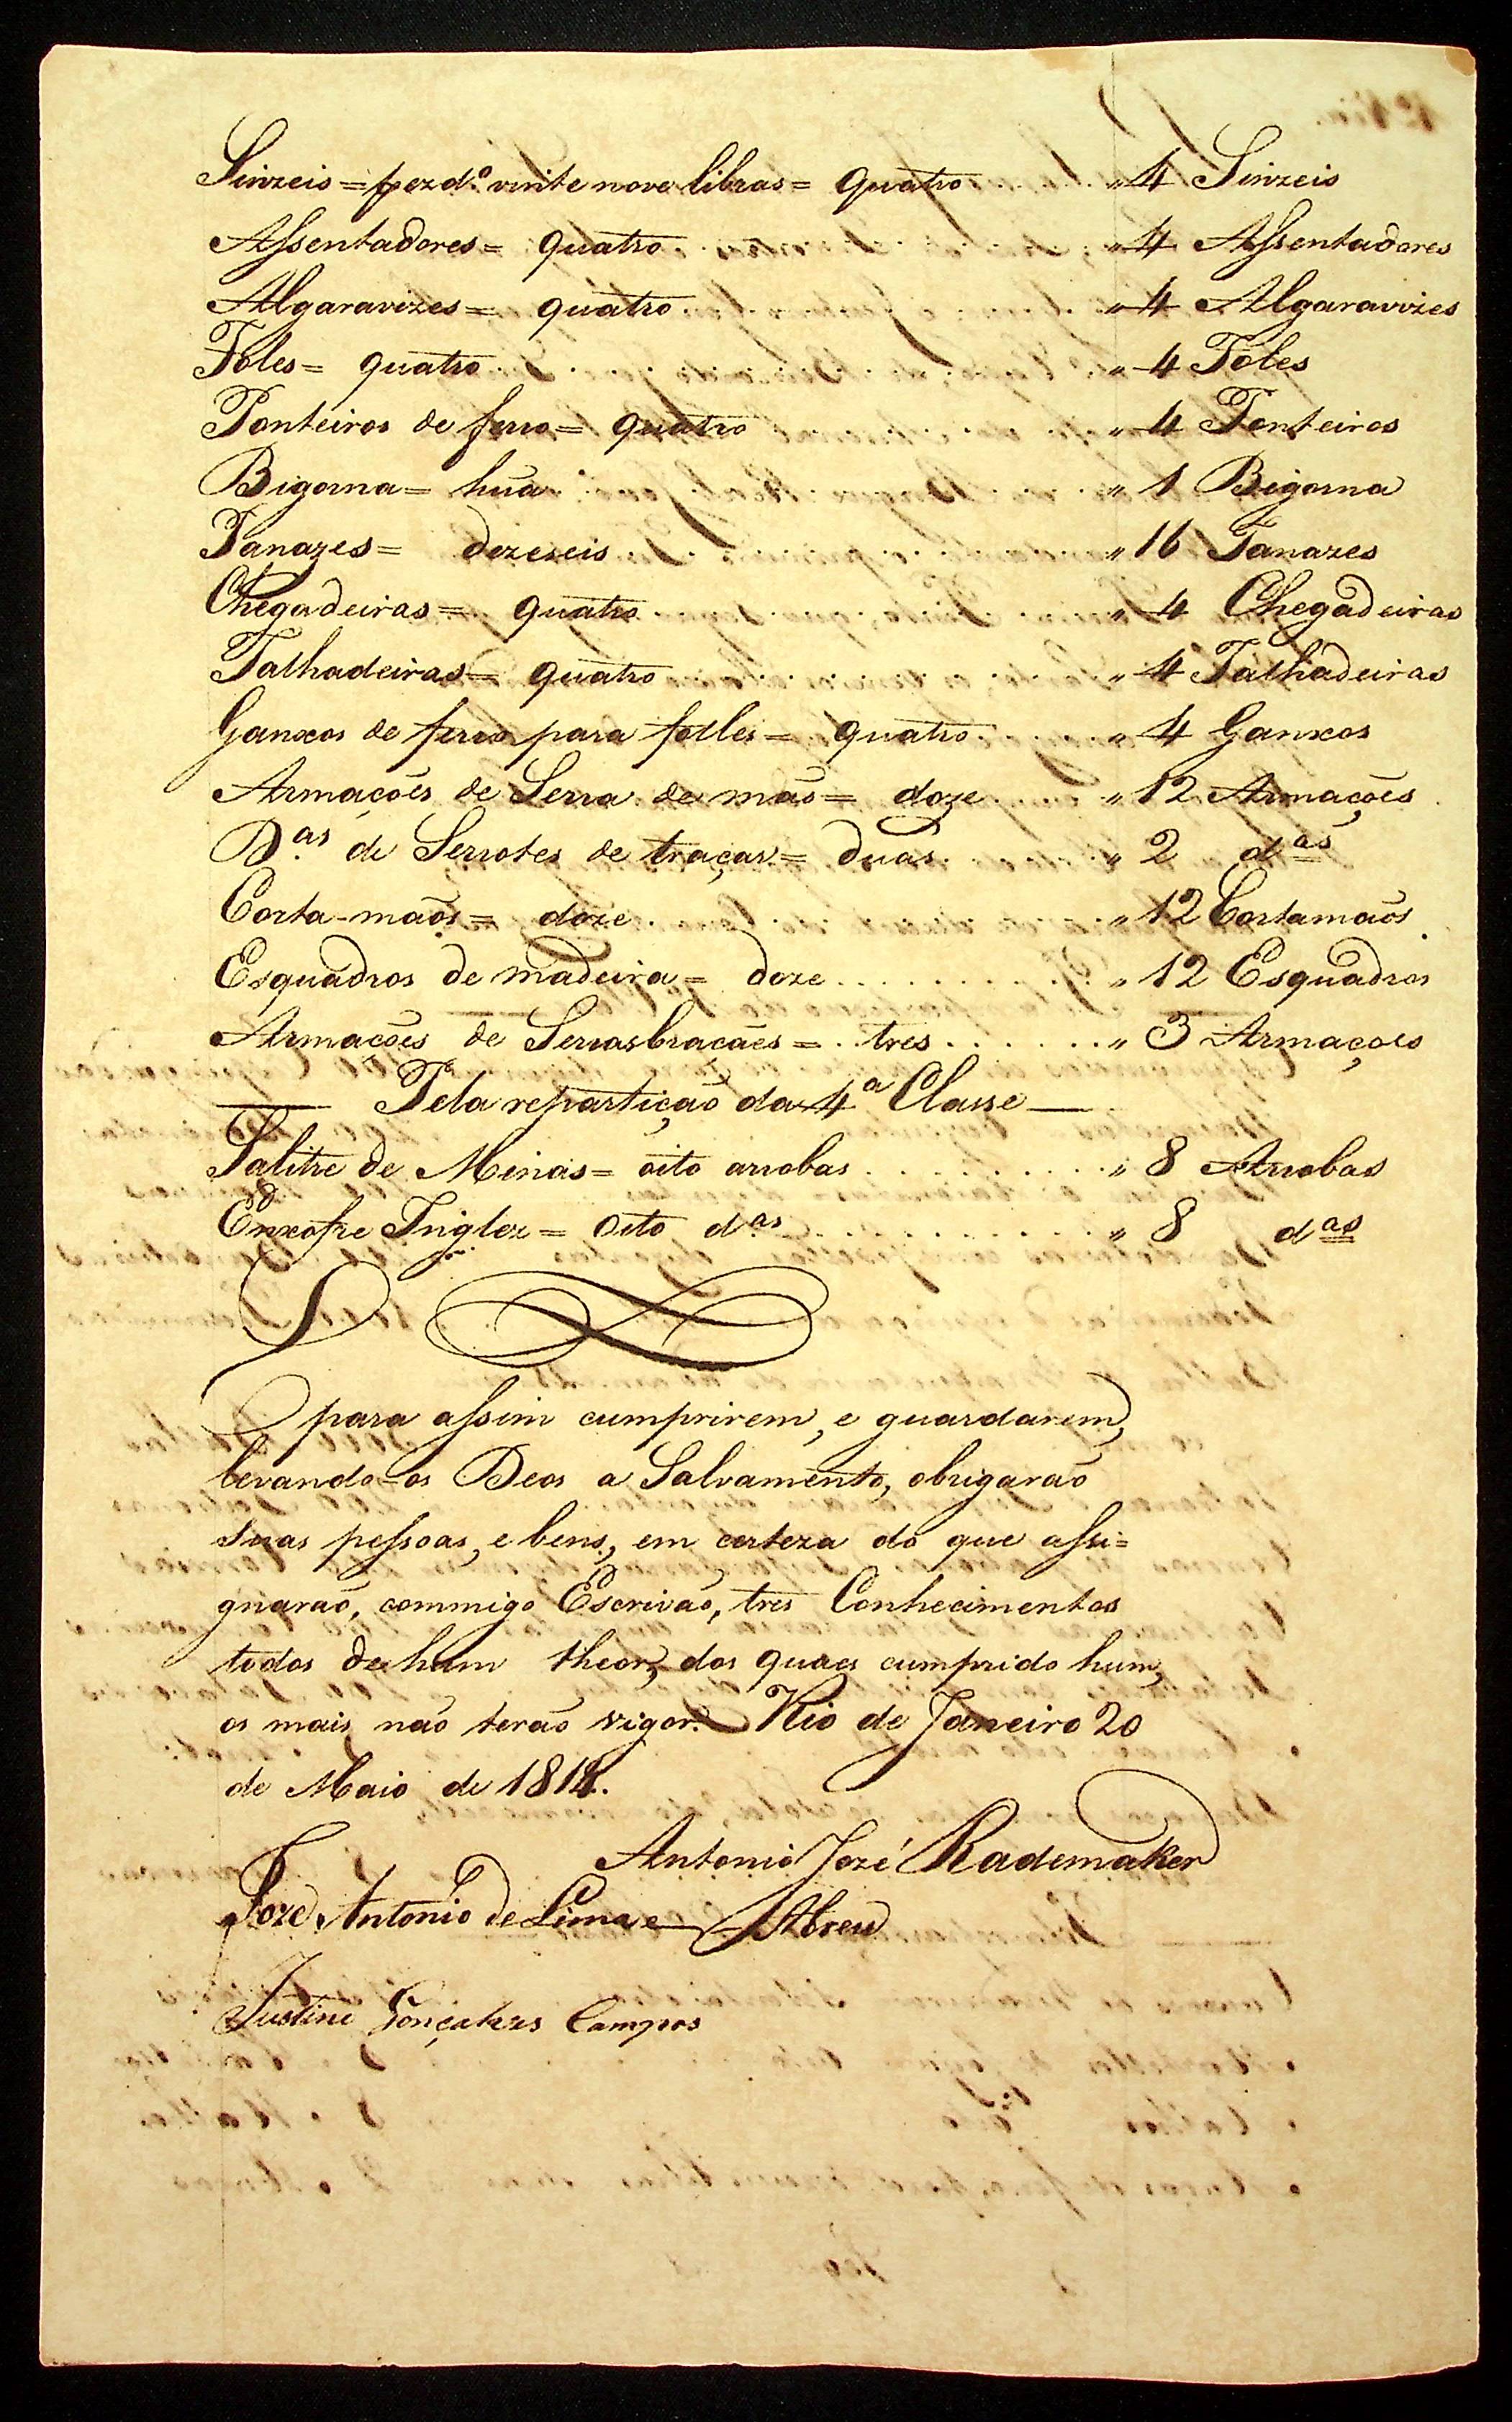 Sinzeis = pezdo. vinte nove libras = quatro . . . . " 4 Sinzeis
Assentadores = quatro . . . . " 4 Assentadores
Algaravizes = quatro . . . . " 4 Algaravizes
Foles = quatro . . . . " 4 Foles
Ponteiros de ferro = quatro . . . . " 4 Ponteiros
Bigorna = hũa . . . . " 1 Bigorna
Tanazes = dezeseis . . . . " 16 Tanazes
Chegadeiras = quatro . . . . " 4 Chegadeiras
Talhadeiras = quatro . . . . " 4 Talhadeiras
Ganxos de ferro para folles = quatro . . . . " 4 Ganxos
Armaçoẽs de Serra de maõ = doze . . . . " 12 Armaçoẽs
Das. de Serrotes de traçar = duas . . . . " 2 das
Corta-maõs = doze . . . . " 12 Cortamaõs
Esquadros de madeira = doze . . . . " 12 Esquadros
Armaçoẽs de Serras braçaes = tres . . . . " 3 Armaçoes
Pela repartiçaõ da 4a Classe
Salitre de Minas = oito arrobas . . . . " 8 Arrobas
Enxofre Inglez = oito das. . . . . " 8 das
para assim cumprirem, e guardarem,
levando-os Deos a Salvamento, obrigaraõ
suas pessoas, e bens, em certeza do que assi=
gnaraõ, commigo Escrivaõ, tres Conhecimentos
todos de hum theor, dos quaes cumprido hum,
os mais naõ teraõ vigor. Rio de Janeiro 20
de Maio de 1818.
Antonio José Rademaker
Joze Antonio de Lima e Abreu
Justino Gonçalves Campos